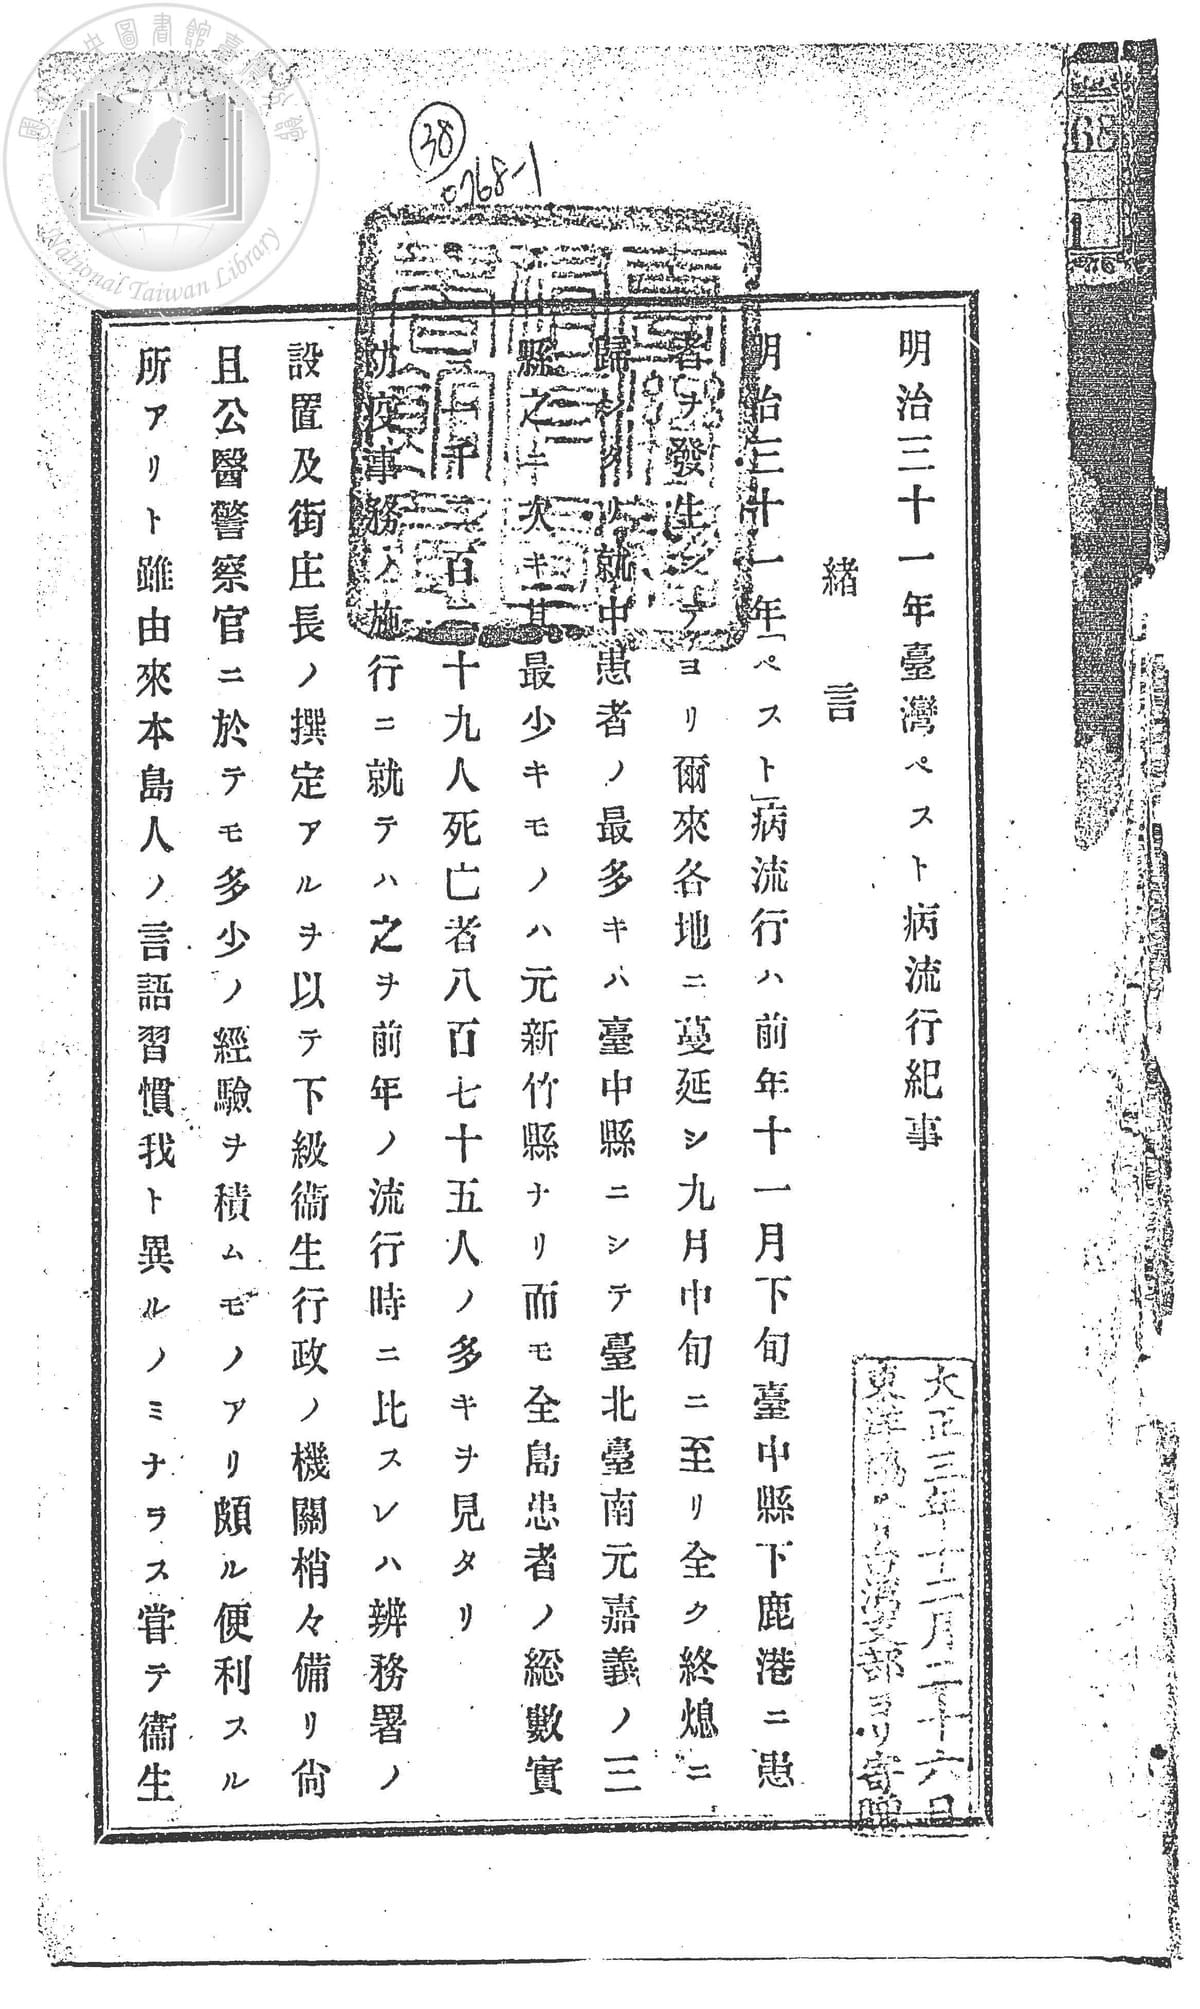 國立中央圖書館臺灣分館
National Taiwan Library
38
0768-1
明治三十一年臺灣ペスト病流行紀事
緒言
明治三十一年「ペスト」病流行ハ前年十一月下旬臺中縣下鹿港ニ患
者ヲ發生シテヨリ爾來各地ニ蔓延シ九月中旬ニ至リ全ク終熄ニ
歸シタリ就中患者ノ最多キハ臺中縣ニシテ臺北臺南元嘉義ノ三
縣之ニ次キ其最少キモノハ元新竹縣ナリ而モ全島患者ノ総數實
ニ一千二百三十九人死亡者八百七十五人ノ多キヲ見タリ
防疫事務ノ施行ニ就テハ之ヲ前年ノ流行時ニ比スレハ辨務署ノ
設置及街庄長ノ撰定アルヲ以テ下級衞生行政ノ機關梢々備リ尙
且公醫警察官ニ於テモ多少ノ經驗ヲ積ムモノアリ頗ル便利スル
所アリト雖由來本島人ノ言語習慣我ト異ルノミナラス嘗テ衞生
大正三年十二月二十六日
東洋協會台灣支部ヨリ寄贈